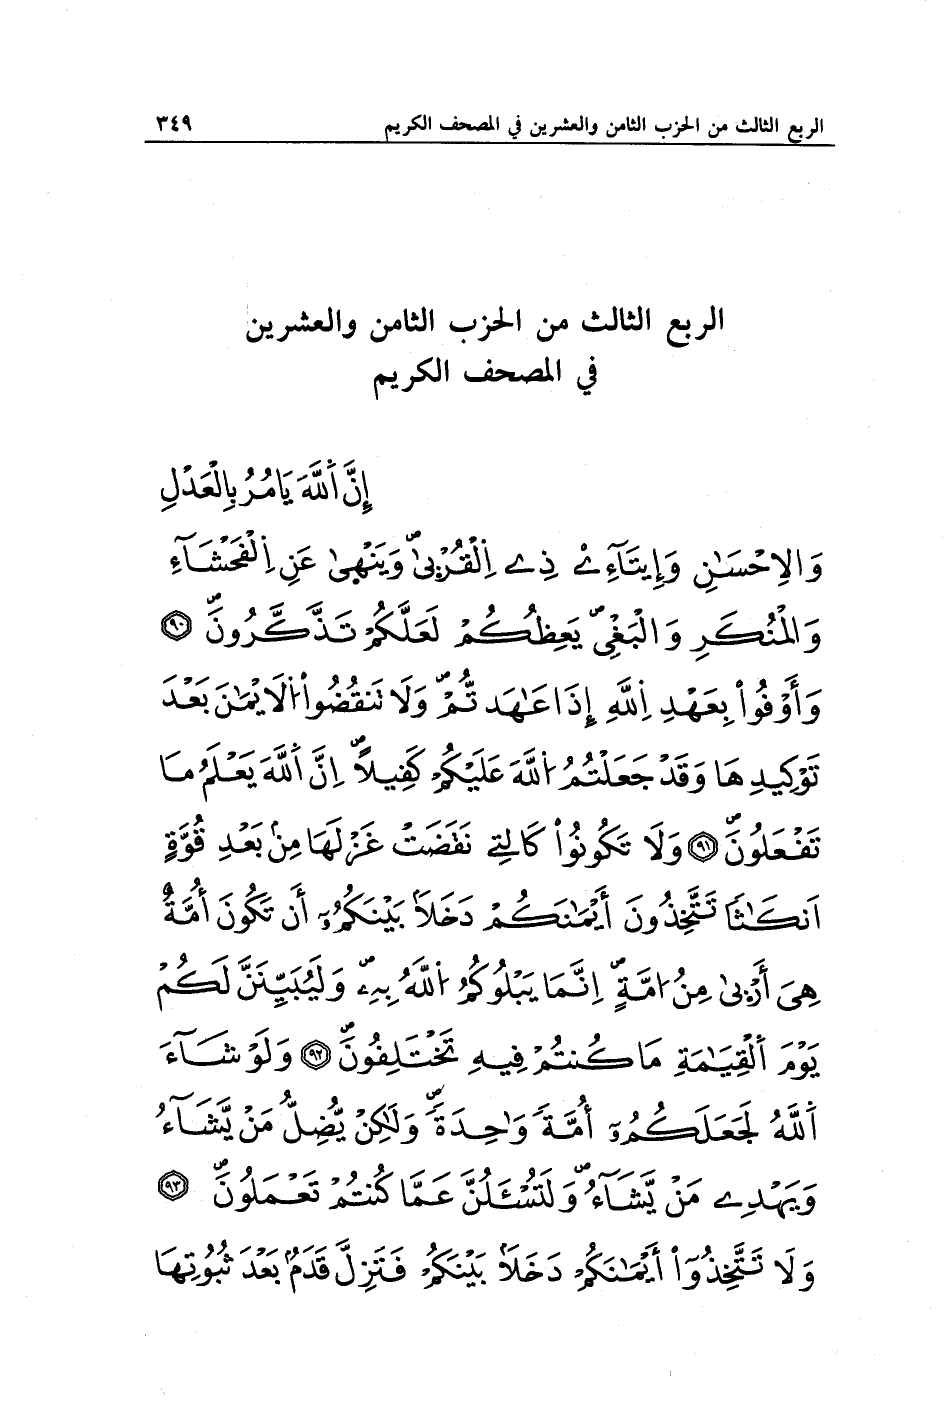 الربع الثالث من الحزب الثامن والعشرين في المصحف الكريم ٣٤٩
الربع الثالث من الحزب الثامن والعشرين
في المصحف الكريم
إِنَّ اَ۬للَّهَ يَامُرُ بِالْعَدْلِ
وَالِاحْسَٰنِ وَإِيتَآءِے ذِے اِ۬لْقُرْب۪يٰۖ وَيَنْه۪يٰ عَنِ اِ۬لْفَحْشَآءِ
وَالْمُنكَرِ وَالْبَغْيِۖ يَعِظُكُمْ لَعَلَّكُمْ تَذَّكَّرُونَۖ ٩٠
وَأَوْفُواْ بِعَهْدِ اِ۬للَّهِ إِذَا عَٰهَدتُّمْۖ وَلَا تَنقُضُواْ اُ۬لَايْمَٰنَ بَعْدَ
تَوْكِيدِهَا وَقَدْ جَعَلْتُمُ اُ۬للَّهَ عَلَيْكُمْ كَفِيلاًۖ اِنَّ اَ۬للَّهَ يَعْلَمُ مَا
تَفْعَلُونَۖ ٩١ وَلَا تَكُونُواْ كَالتِے نَقَضَتْ غَزْلَهَا مِنۢ بَعْدِ قُوَّةٍ
اَنكَٰثاٗ تَتَّخِذُونَ أَيْمَٰنَكُمْ دَخَلاَۢ بَيْنَكُمُۥٓ أَن تَكُونَ أُمَّةٌ
هِيَ أَرْب۪يٰ مِنُ ا۟مَّةٍۖ اِنَّمَا يَبْلُوكُمُ اُ۬للَّهُ بِهِۦۖ وَلَيُبَيِّنَنَّ لَكُمْ
يَوْمَ اَ۬لْقِيَٰمَةِ مَا كُنتُمْ فِيهِ تَخْتَلِفُونَۖ ٩٢ وَلَوْ شَآءَ
اَ۬للَّهُ لَجَعَلَكُمُۥٓ أُمَّةٗ وَٰحِدَةٗۖ وَلَٰكِنْ يُّضِلُّ مَنْ يَّشَآءُ
وَيَهْدِے مَنْ يَّشَآءُۖ وَلَتُسْـَٔلُنَّ عَمَّا كُنتُمْ تَعْمَلُونَۖ ٩٣
وَلَا تَتَّخِذُوٓاْ أَيْمَٰنَكُمْ دَخَلاَۢ بَيْنَكُمْ فَتَزِلَّ قَدَمُۢ بَعْدَ ثُبُوتِهَا